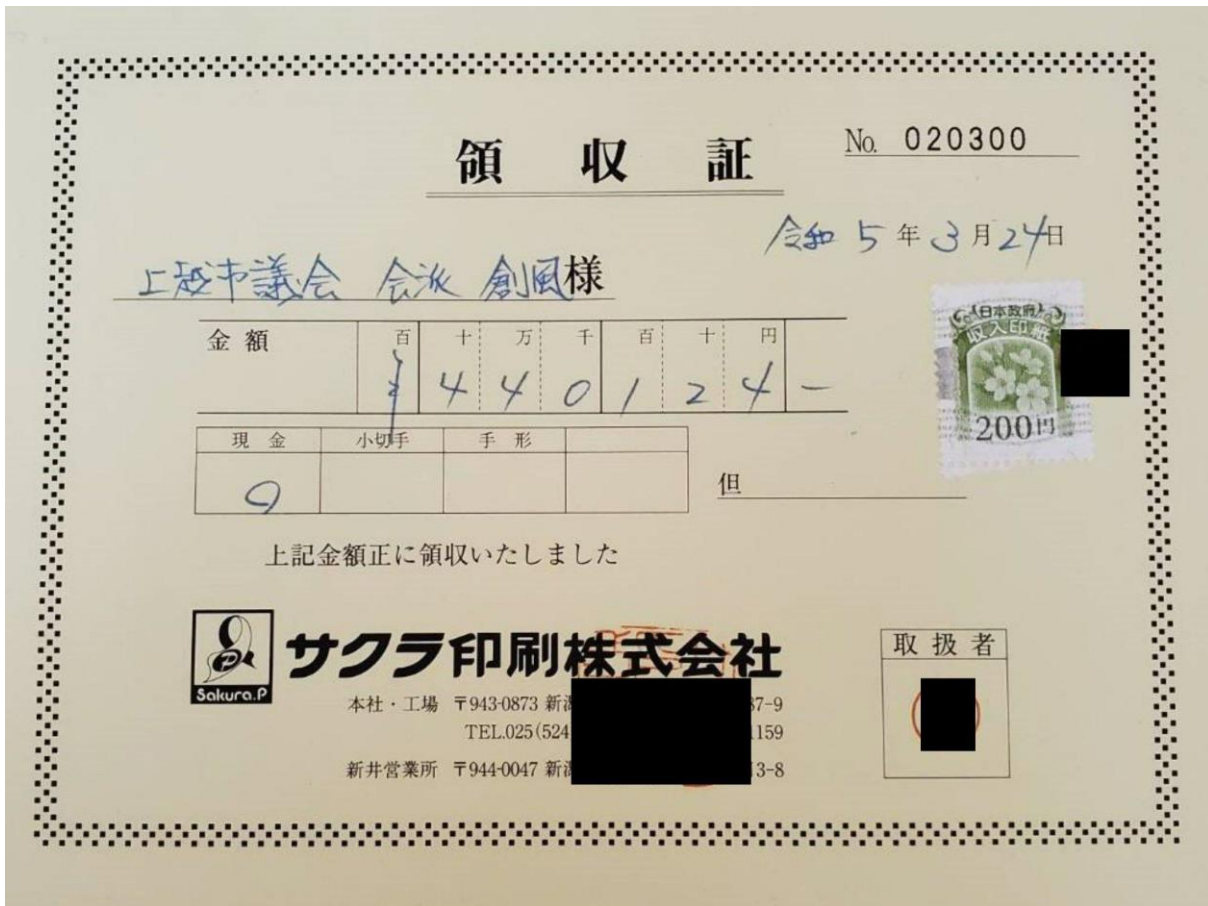 領収証
No. 020300
令和 5 年 3 月 24 日
上越市議会 会派 創風 様
金額 百 十 万 千 百 十 円
¥ 4 4 0 1 2 4 —
現金 小切手 手形
但
上記金額正に領収いたしました
日本政府
収入印紙
200円
Sakura.P
サクラ印刷株式会社
本社・工場 〒943-0873 新潟 37-9
TEL.025(524 1159
新井営業所 〒944-0047 新潟 3-8
取扱者